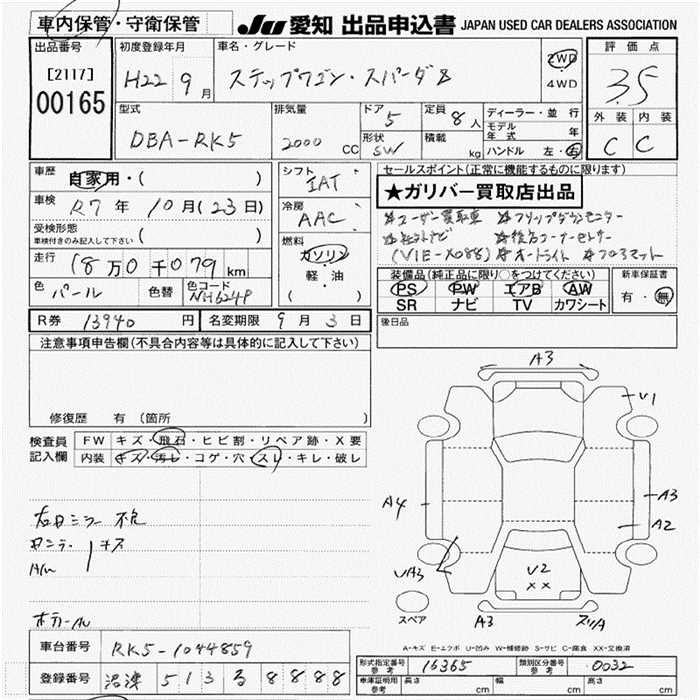 車内保管・守衛保管
JU 愛知 出品申込書 JAPAN USED CAR DEALERS ASSOCIATION
出品番号
[2117]
00165
初度登録年月
H22 9 月
車名・グレード
ステップワゴン・スパーダS
2WD
4WD
評価点
3.5
外装 内装
C C
型式
DBA-RK5
排気量
2000 CC
ドア
5
形状
SW
定員
8人
積載
kg
ディーラー・並行
モデル年式 年
ハンドル 左・右
車歴
自家用・( )
車検
R7年 10月(23日)
受検形態
車検付きのみ記入して下さい ( )
走行
18万0千079 km
色
パール
色替
色コード
NH624P
シフト
IAT
冷房
AAC
燃料
ガソリン
・
軽・油
( )
セールスポイント(正常に機能するものに限ります)
★ガリバー買取店出品
☆ユーザー買取車 ☆フリップダウンモニター
☆社外ナビ ☆後方コーナーセンサー
(VIE-X088) ☆オートライト ☆フロアマット
装備品(純正品に限り○をつけてください)
PS PW エアB AW
SR ナビ TV カワシート
新車保証書
有・無
R券 13940 円
名変期限 9月 3日
後日品
注意事項申告欄(不具合内容等は具体的に記入して下さい)
修復歴 有(箇所 )
検査員
記入欄
FW キズ・飛石・ヒビ割・リペア跡・X要
内装 キズ・汚レ・コゲ・穴・スレ・キレ・破レ
左日ミラー 不良
キズ
A/W
ホテール
A3
V1
A4
A3
A2
UA3
U2
XX
A3
スリA
スペア
A-キズ E-エクボ U-凹み W-補修跡 S-サビ C-腐食 XX-交換済
車台番号
RK5-1044859
登録番号
沼津 513 る 8888
形式指定番号
参考
16365
類別区分番号
参考
0032
車庫証明用
参考
長さ cm
幅 cm
高さ cm